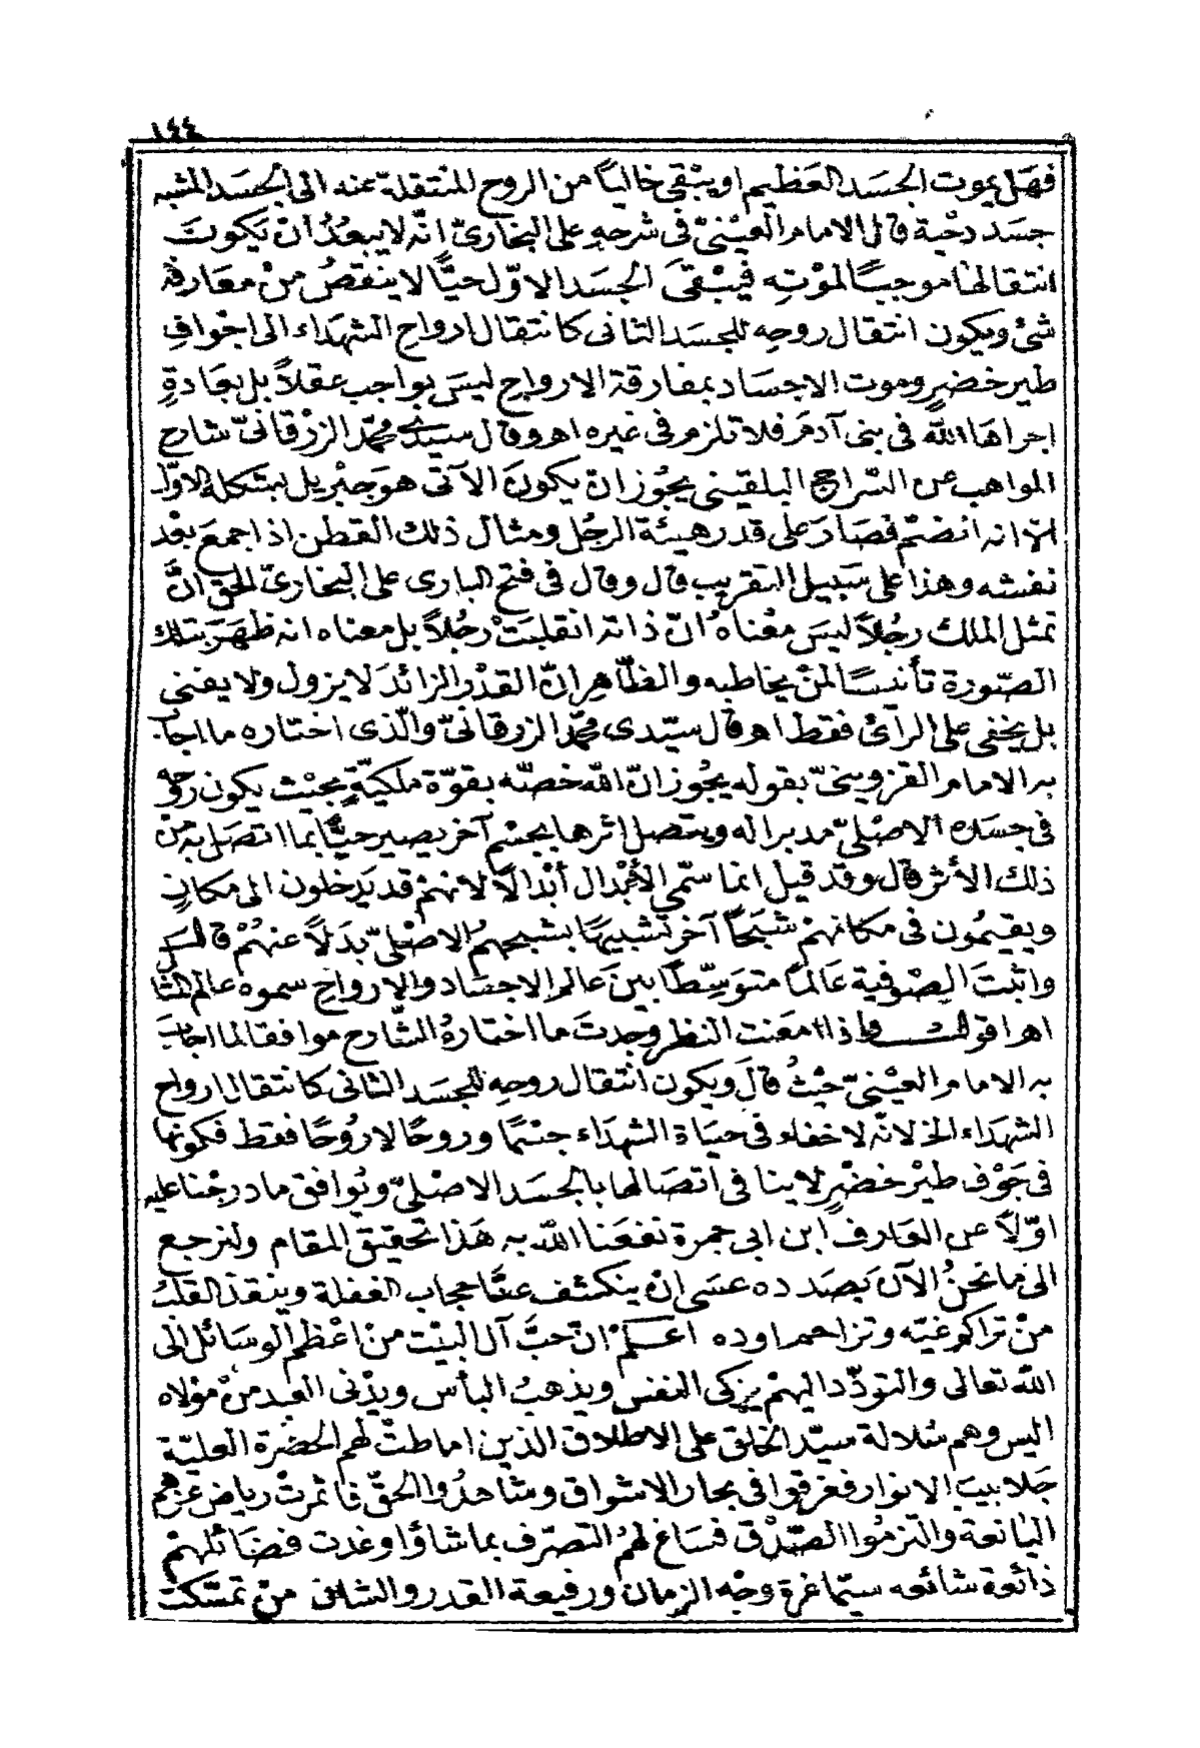 ١٤٤
فهل يموت الجسد العَظيم او يبْقى خاليًا من الروح المنتقلة عنه الى الجسَد المشبه
جسد دحْية قال الامام العيْنىّ فى شرحهِ على البخارىّ انّه لا يبعُدُ ان يكوت
انتقالها موجبًا لموْتِه فيبْقىَ الجسَد الاوّل حيًّا لا ينقصُ منْ معَارفه
شئ ويكون انتقال روحِه للجسَد الثانى كانتقال ارواحِ الشهدَاء الى اجْوافِ
طير خضرٍ وموت الاجسَاد بمفارقة الارواحِ ليسَ بواجب عقلاً بل بعَادةٍ
اجراهَا اللّه فى بنى آدمَ فلا تلزم فى غيره اهـ وقال سيّدى محمّد الزرْقانىّ شارح
المواهب عن السّراج البلقينى يجُوز ان يكونَ الآتى هوَ جبْريل بشكله الاوّل
الّا انه انضمّ فصَارَ على قدر هيئة الرجُل ومثال ذلك القطن اذا جمعَ بعْد
نفشه وهذا على سَبيل التقريب قال وقال فى فتح البارى على البخارىّ الحقّ انَّ
تمثل الملك رجُلاً ليسَ معْناهُ انّ ذاته انقلبَتْ رجُلاً بل معناه انه ظهَرَ بتلك
الصّورة تأنيسًا لمنْ يخاطبه والظّاهِر انّ القدْر الزائدَ لا يزول ولا يفنى
بل يخفى على الرآئ فقط اهـ قال سيّدى محمّد الزرقانىّ والّذى اختاره ما اجاب
به الامام القزوينىّ بقوله يجُوز انّ اللّه خصّه بقوّة ملكيّةٍ بحيْث يكون روحه
فى جسَده الاصْلىّ مدبرا له ويتصل اثرها بجسْم آخر يصير حيًّا بما اتصَل به منْ
ذلك الأثر قال وقد قيل انما سمّى الأبْدال أبْدالًا لانهمْ قد يَرحلون الى مكانٍ
ويقيمُون فى مكانهمْ شبَحًا آخر شبيهًا بشبحهمُ الاصْلىّ بدَلاً عنهُمْ قال
واثبتَ الصّوفية عَالمًا متوَسِّطًا بينَ عالم الاجسَاد والارواحِ سموه عالم المثا
اهـ اقول واذا امعَنت النظر وجدتَ ما اختارهُ الشّارح موافقا لما اجاب
به الامام العيْنىّ حيْثُ قالَ ويكون انتقال روحِه للجسَد الثانى كانتقال ارواح
الشهدَاء الخ لانّه لا خفاء فى حيَاة الشهدَاء جسْمًا وروحًا لا رُوحًا فقط فكونها
فى جَوْف طيْر خضْرٍ لا ينافى اتصَالها بالجسَد الاصْلىّ ونُوافق ما درجْنا عليه
اوّلاً عن العَارف ابن ابى جمرة نفعَنا اللّه به هَذا تحقيق المقام ولنرجع
الى ما نحنُ الآن بصَدده عسَى انْ ينكشف عنّا حجاب الغفلة وينقذ القلبُ
منْ تراكم غيّه وتزاحم اوده اعلمْ انّ حبَّ آل البيْت منْ اعْظم الوسَائل الى
اللّه تعالى والتودّد اليهمْ يزكى النفس ويذهبُ البأس ويدْنى العبد منْ موْلاه
اليس وهم سُلالة سيّد الخلق على الاطْلاق الذين اماطتْ لهم الحضْرة العليّة
جَلابيبَ الانوار فغرقوا فى بحار الاشْواق وشاهدُوا الحقّ فاثمرتْ رياض عزهم
اليَانعة والتزمُوا الصّدْق فسَاغ لهمُ التصرّف بما شاؤا وغدت فضَائلهمْ
ذائعة شائعه سيّما غرة وجْه الزمان ورفيعة القدر والشان منْ تمسّكت